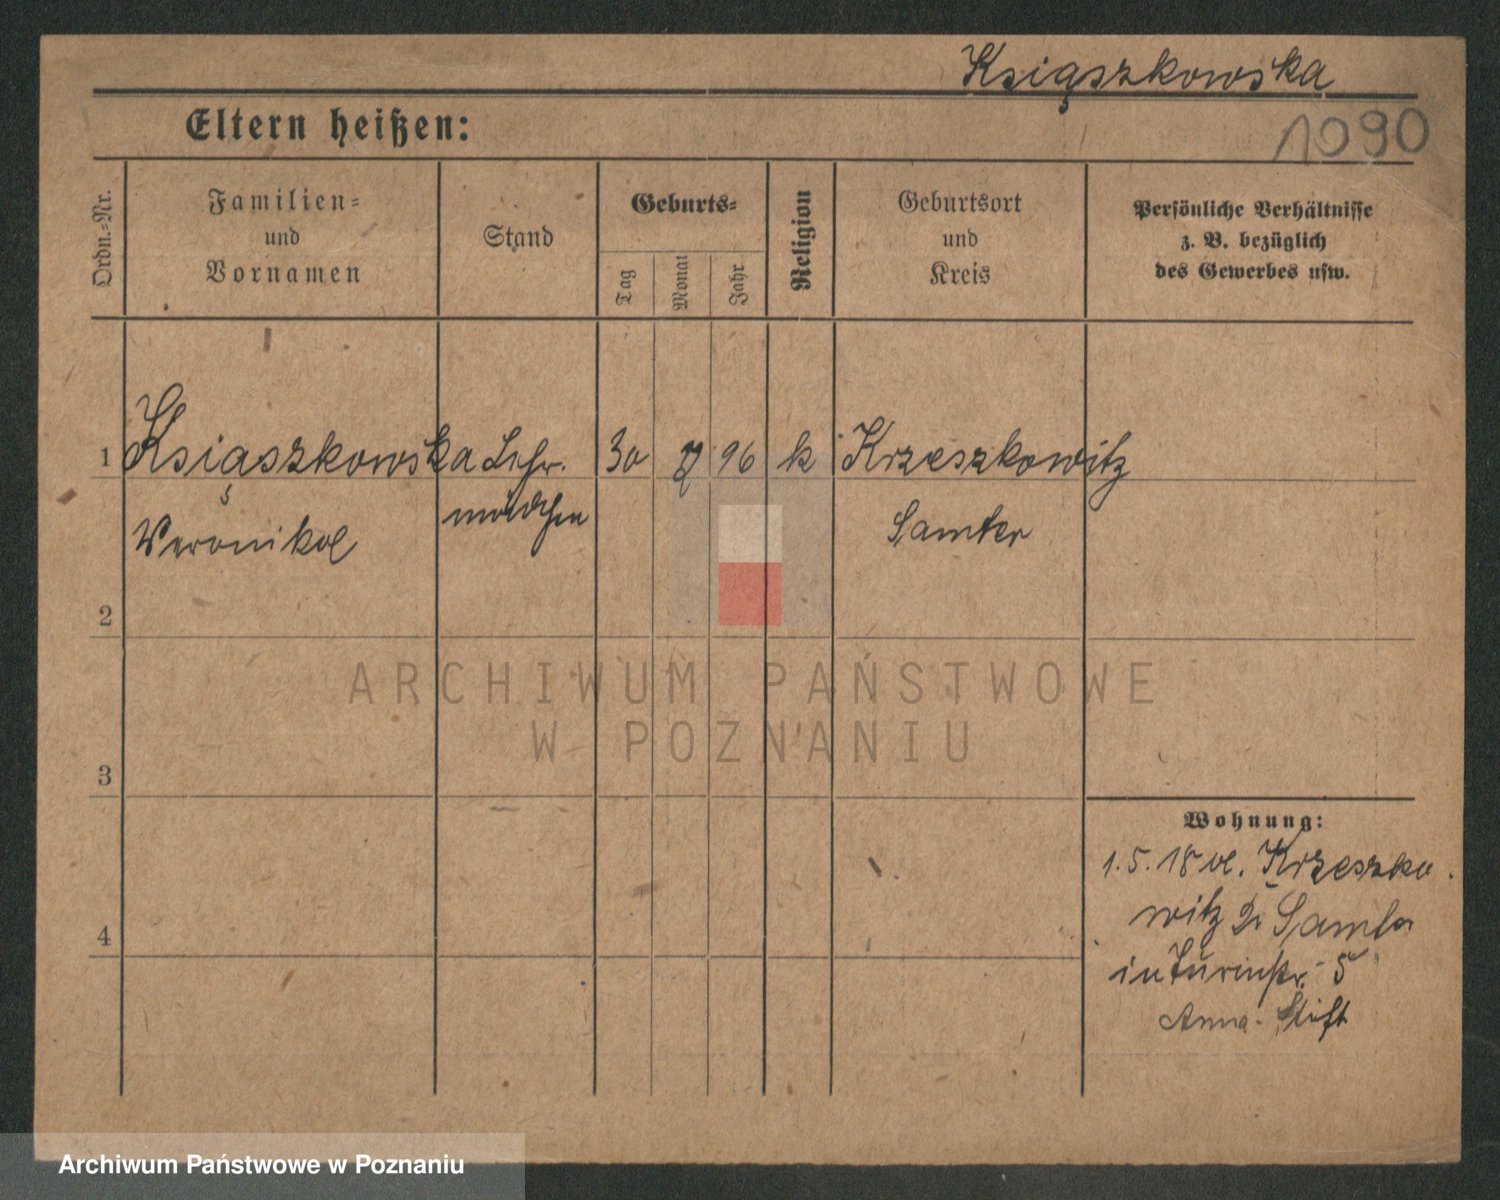 Książkowska
Eltern heißen:
1090
Ordn.-Nr.
Familien-
und
Vornamen
Stand
Geburts-
Tag
Monat
Jahr
Religion
Geburtsort
und
Kreis
Persönliche Verhältnisse
z. B. bezüglich
des Gewerbes usw.
1 Ksiąszkowska Lehr. 30 96 k Krzeszkowitz
mädchen
Veronika Samter
2
3
4
Wohnung:
1. 5. 18 Krzeszko
witz Samter
in Turmstr. 5
Anna-Stift
ARCHIWUM PAŃSTWOWE
W POZNANIU
Archiwum Państwowe w Poznaniu